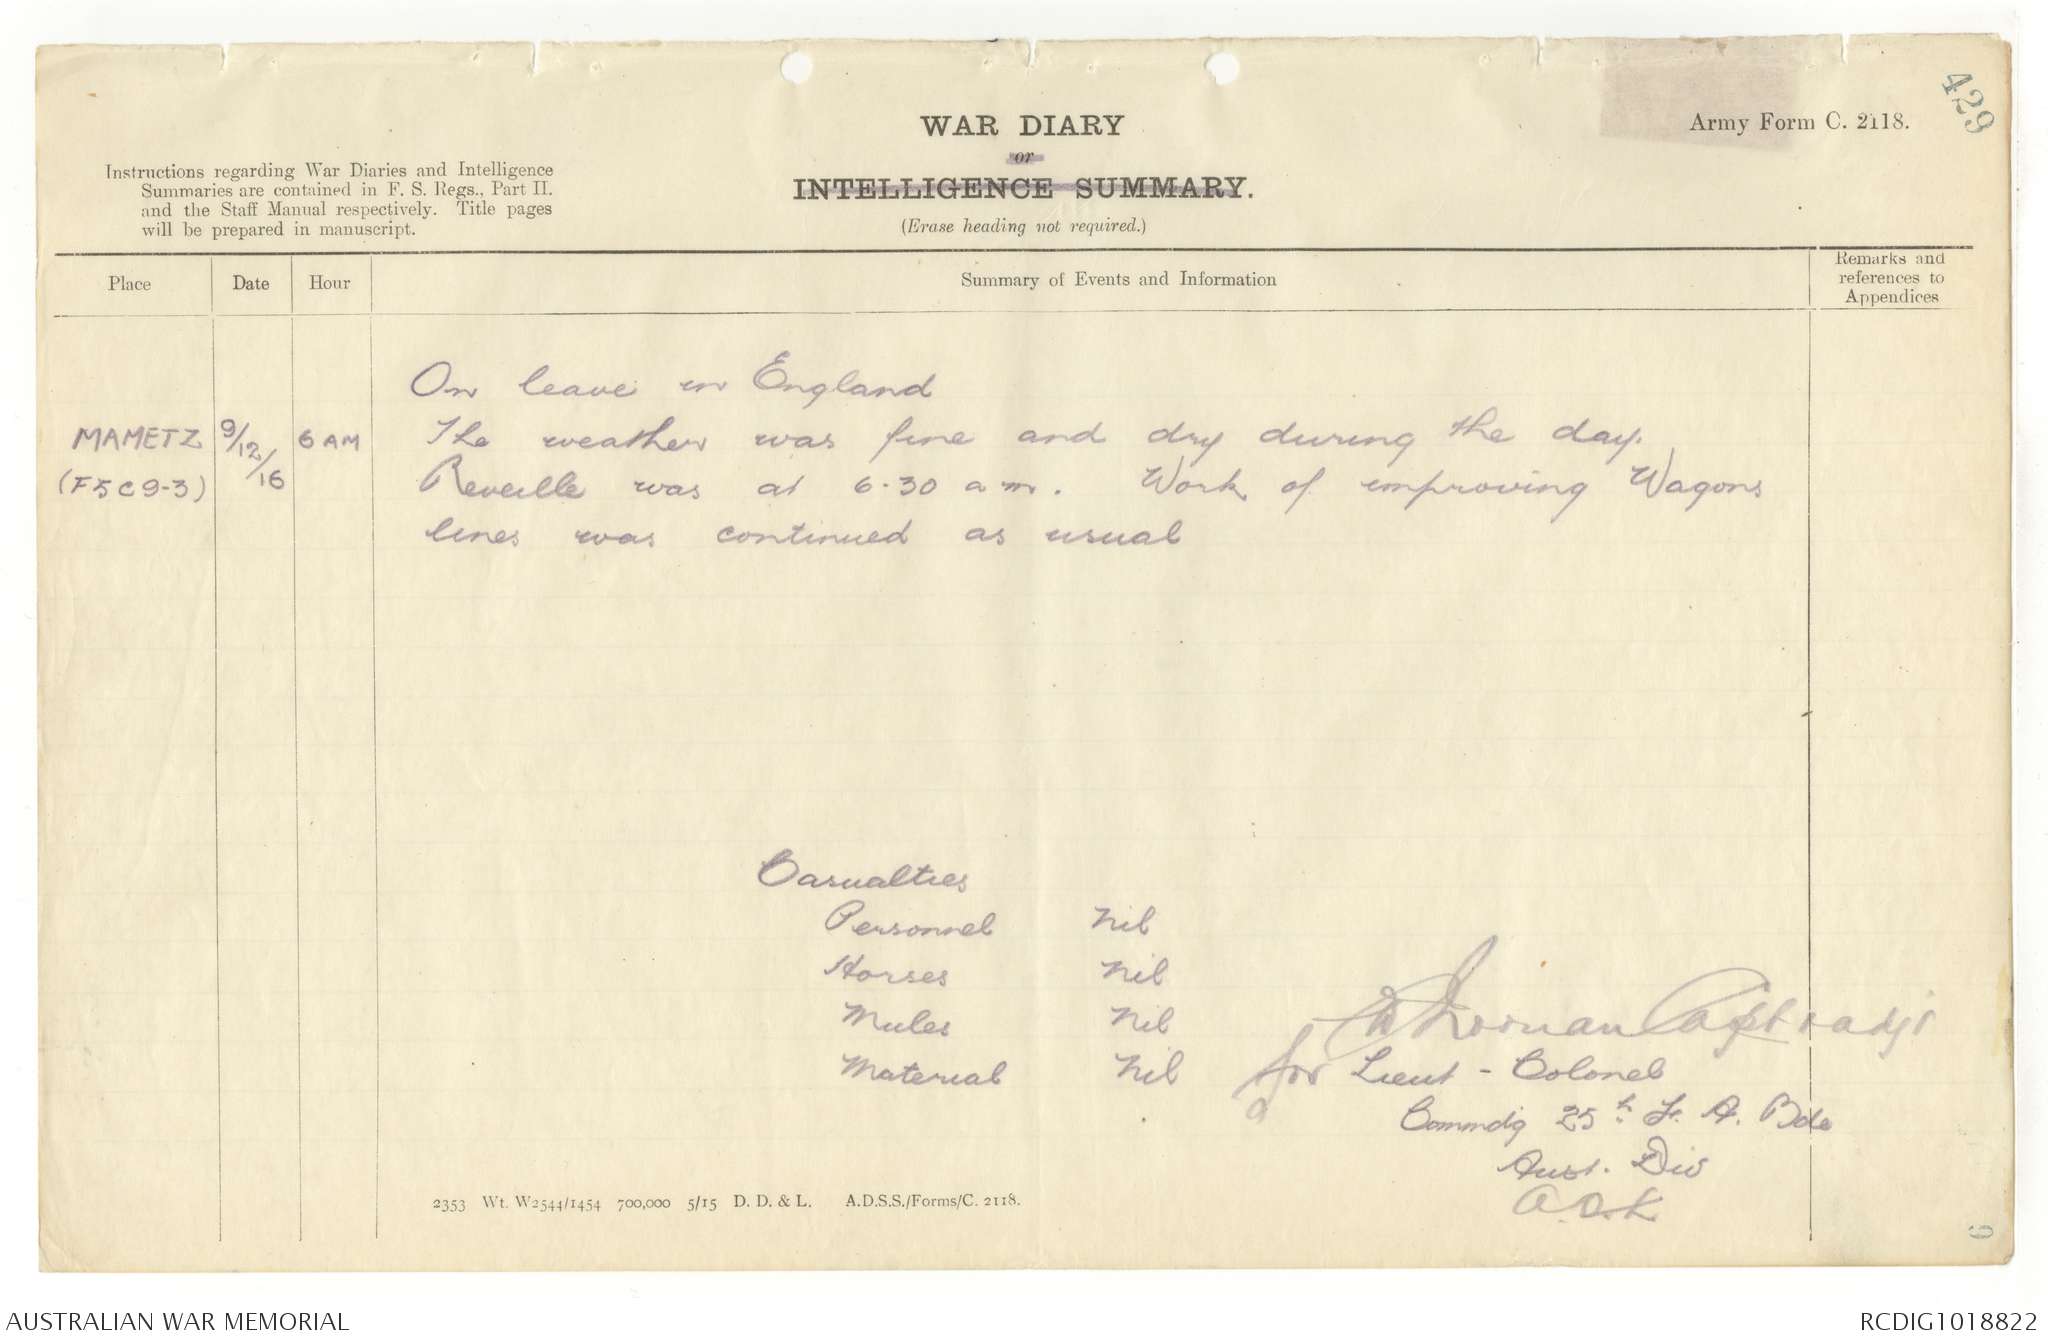 429
Army Form C. 2118.
WAR DIARY
or
INTELLIGENCE SUMMARY.
(Erase heading not required.)
Instructions regarding War Diaries and Intelligence
Summaries are contained in F. S. Regs., Part II.
and the Staff Manual respectively. Title pages
will be prepared in manuscript.
Place Date Hour Summary of Events and Information Remarks and references to Appendices
On leave in England
MAMETZ 9/12/16 6 AM The weather was fine and dry during the day.
(F5C9-3) Reveille was at 6-30 am. Work of improving Wagons
lines was continued as usual
Casualties
Personnel Nil
Horses Nil
Mules Nil
Material Nil
Capt & adjt
for Lieut-Colonel
Commdg 25th F. A. Bde
Aust. Div
2353 Wt. W2544/1454 700,000 5/15 D. D. & L. A.D.S.S./Forms/C. 2118.
9
AUSTRALIAN WAR MEMORIAL
RCDIG1018822